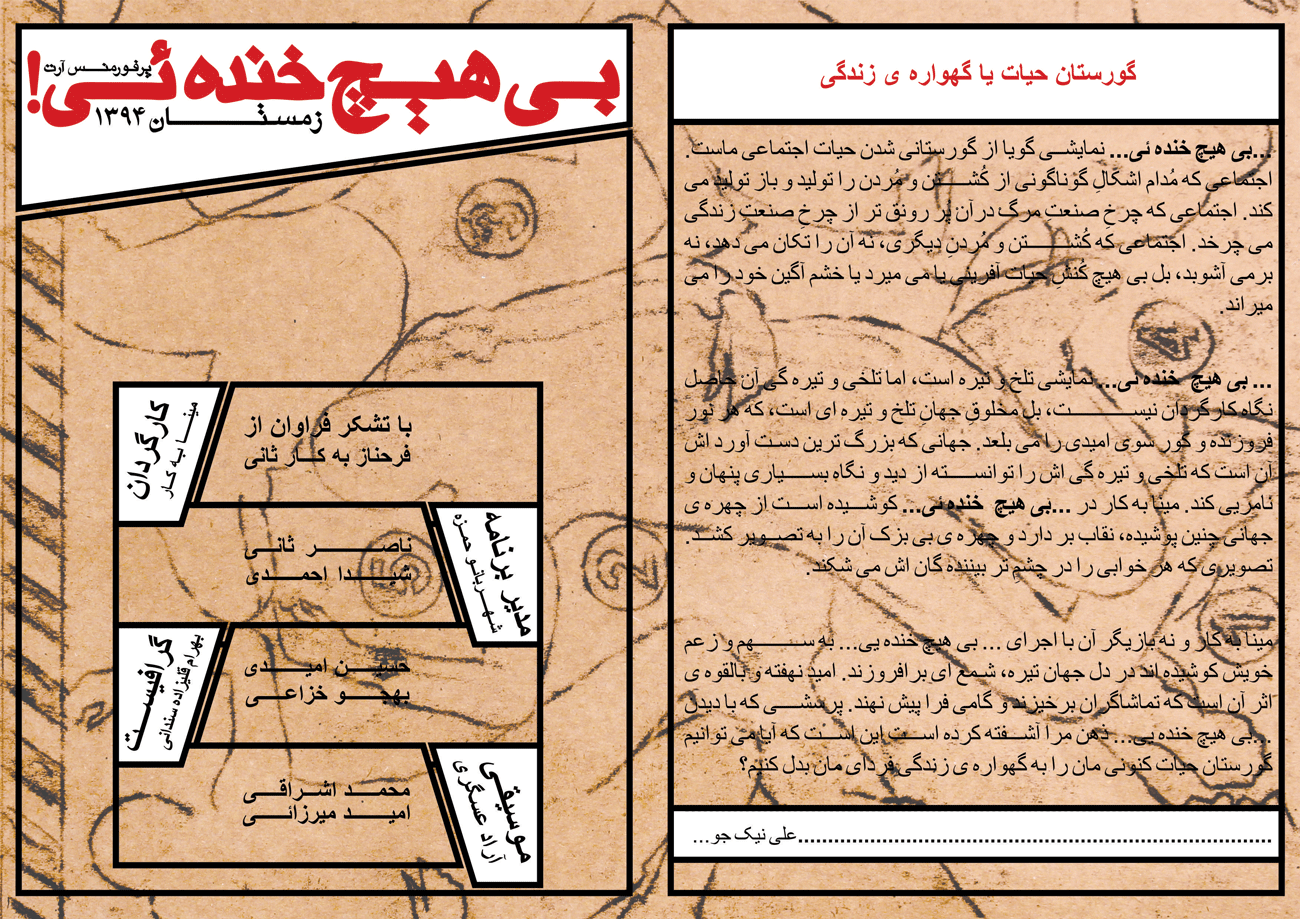 گورستان حیات یا گهواره ی زندگی
...بی هیچ خنده ئی... نمایشی گویا از گورستانی شدن حیات اجتماعی ماست.
اجتماعی که مُدام اشکالِ گوناگونی از کُشتن و مُردن را تولید و باز تولید می
کند. اجتماعی که چرخِ صنعتِ مرگ درآن پر رونق تر از چرخِ صنعتِ زندگی
می چرخد. اجتماعی که کُشتن و مُردنِ دیگری، نه آن را تکان می دهد، نه
برمی آشوبد، بل بی هیچ کُنشِ حیات آفرینی یا می میرد یا خشم آگین خود را می
میراند.
... بی هیچ خنده ئی... نمایشی تلخ و تیره است، اما تلخی و تیره گی آن حاصل
نگاه کارگردان نیست، بل مخلوقِ جهانِ تلخ و تیره ای است، که هر نور
فروزنده و کور سوی امیدی را می بلعد. جهانی که بزرگ ترین دست آورد اش
آن است که تلخی و تیره گی اش را توانسته از دید و نگاه بسیاری پنهان و
نامریی کند. مینا به کار در ...بی هیچ خنده ئی... کوشیده است از چهره ی
جهانی چنین پوشیده، نقاب بر دارد و چهره ی بی بزک آن را به تصویر کشد.
تصویری که هر خوابی را در چشم تر بیننده گان اش می شکند.
مینا به کار و نه بازیگر آن با اجرای ... بی هیچ خنده یی... به سهم و زعم
خویش کوشیده اند در دل جهان تیره، شمع ای برافروزند. امید نهفته و بالقوه ی
اثر آن است که تماشاگران برخیزند و گامی فرا پیش نهند. پرسشی که با دیدن
...بی هیچ خنده یی... ذهن مرا آشفته کرده است این است که آیا می توانیم
گورستان حیات کنونی مان را به گهواره ی زندگی فردای مان بدل کنیم؟
علی نیک جو...
بی هیچ خنده ئی!
پرفورمنس آرت
زمستان ۱۳۹۴
کارگردان
مینا به کار
با تشکر فراوان از
فرحناز به کار ثانی
مدیر برنامه
شهربانو حمزه
ناصر ثانی
شیدا احمدی
گرافیست
بهرام قلیزاده سندانی
حسین امیدی
بهجو خزاعی
موسیقی
آراد عسگری
محمد اشراقی
امید میرزائی
4
2